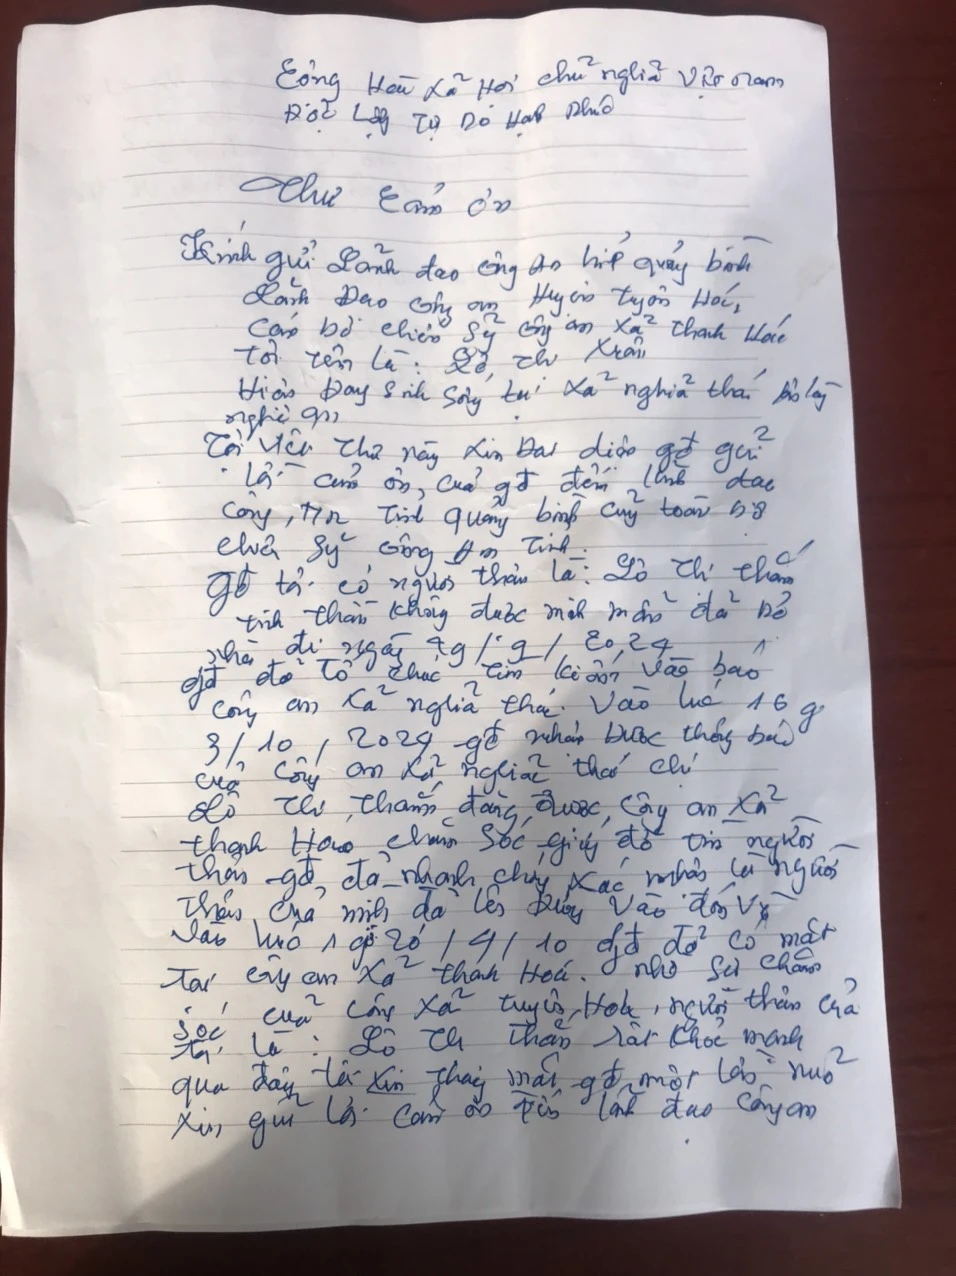 Cộng Hoà Xã Hội chủ nghĩa Việt nam
Độc Lập Tự Do Hạnh Phúc
Thư Cảm ơn
Kính gửi Lãnh đạo công An tỉnh quảng bình
Lãnh Đạo công an Huyện tuyên Hoá,
Cán bộ chiến Sỹ công an Xã thanh Hoá
Tôi tên là: thị Xuân
Hiện Đay Sinh Sống tại Xã nghĩa thái
nghệ an
Tôi viết Thư này xin Đại diện gđ gửi
lời cảm ơn, của gđ đến lãnh đạo
công, An Tỉnh quảng bình cùng toàn bộ
chiến Sỹ công An Tỉnh.
gđ tôi có người thân là: Lô Thị thắm
tinh thần không được minh mẫn đã bỏ
nhà đi ngày / 9 / 2024
gđ đã tổ chức tìm kiếm vào báo
công an Xã nghĩa thái. Vào lúc 16 g
3/10/2024 gđ nhận Được thông báo
của công an Xã nghĩa thái chị
Lô Thị Thắm đang, được, công an Xã
thanh Hoá chăm Sóc giúp đỡ tìm người
thân gđ, đã nhanh chóng xác nhận là người
thân của mình đã lên Đường vào đón về
vào lúc 1 giờ 20 / 4 / 10 gđ đã có mặt
tại công an Xã thanh Hoá. nhờ Sự chăm
Sóc của công Xã tuyên Hoá, người thân của
tôi là: Lô Thị thắm rất khỏe mạnh
qua đây tôi xin thay mặt gđ, một lần nữa
xin gửi lời cảm ơn đến lãnh đạo công an